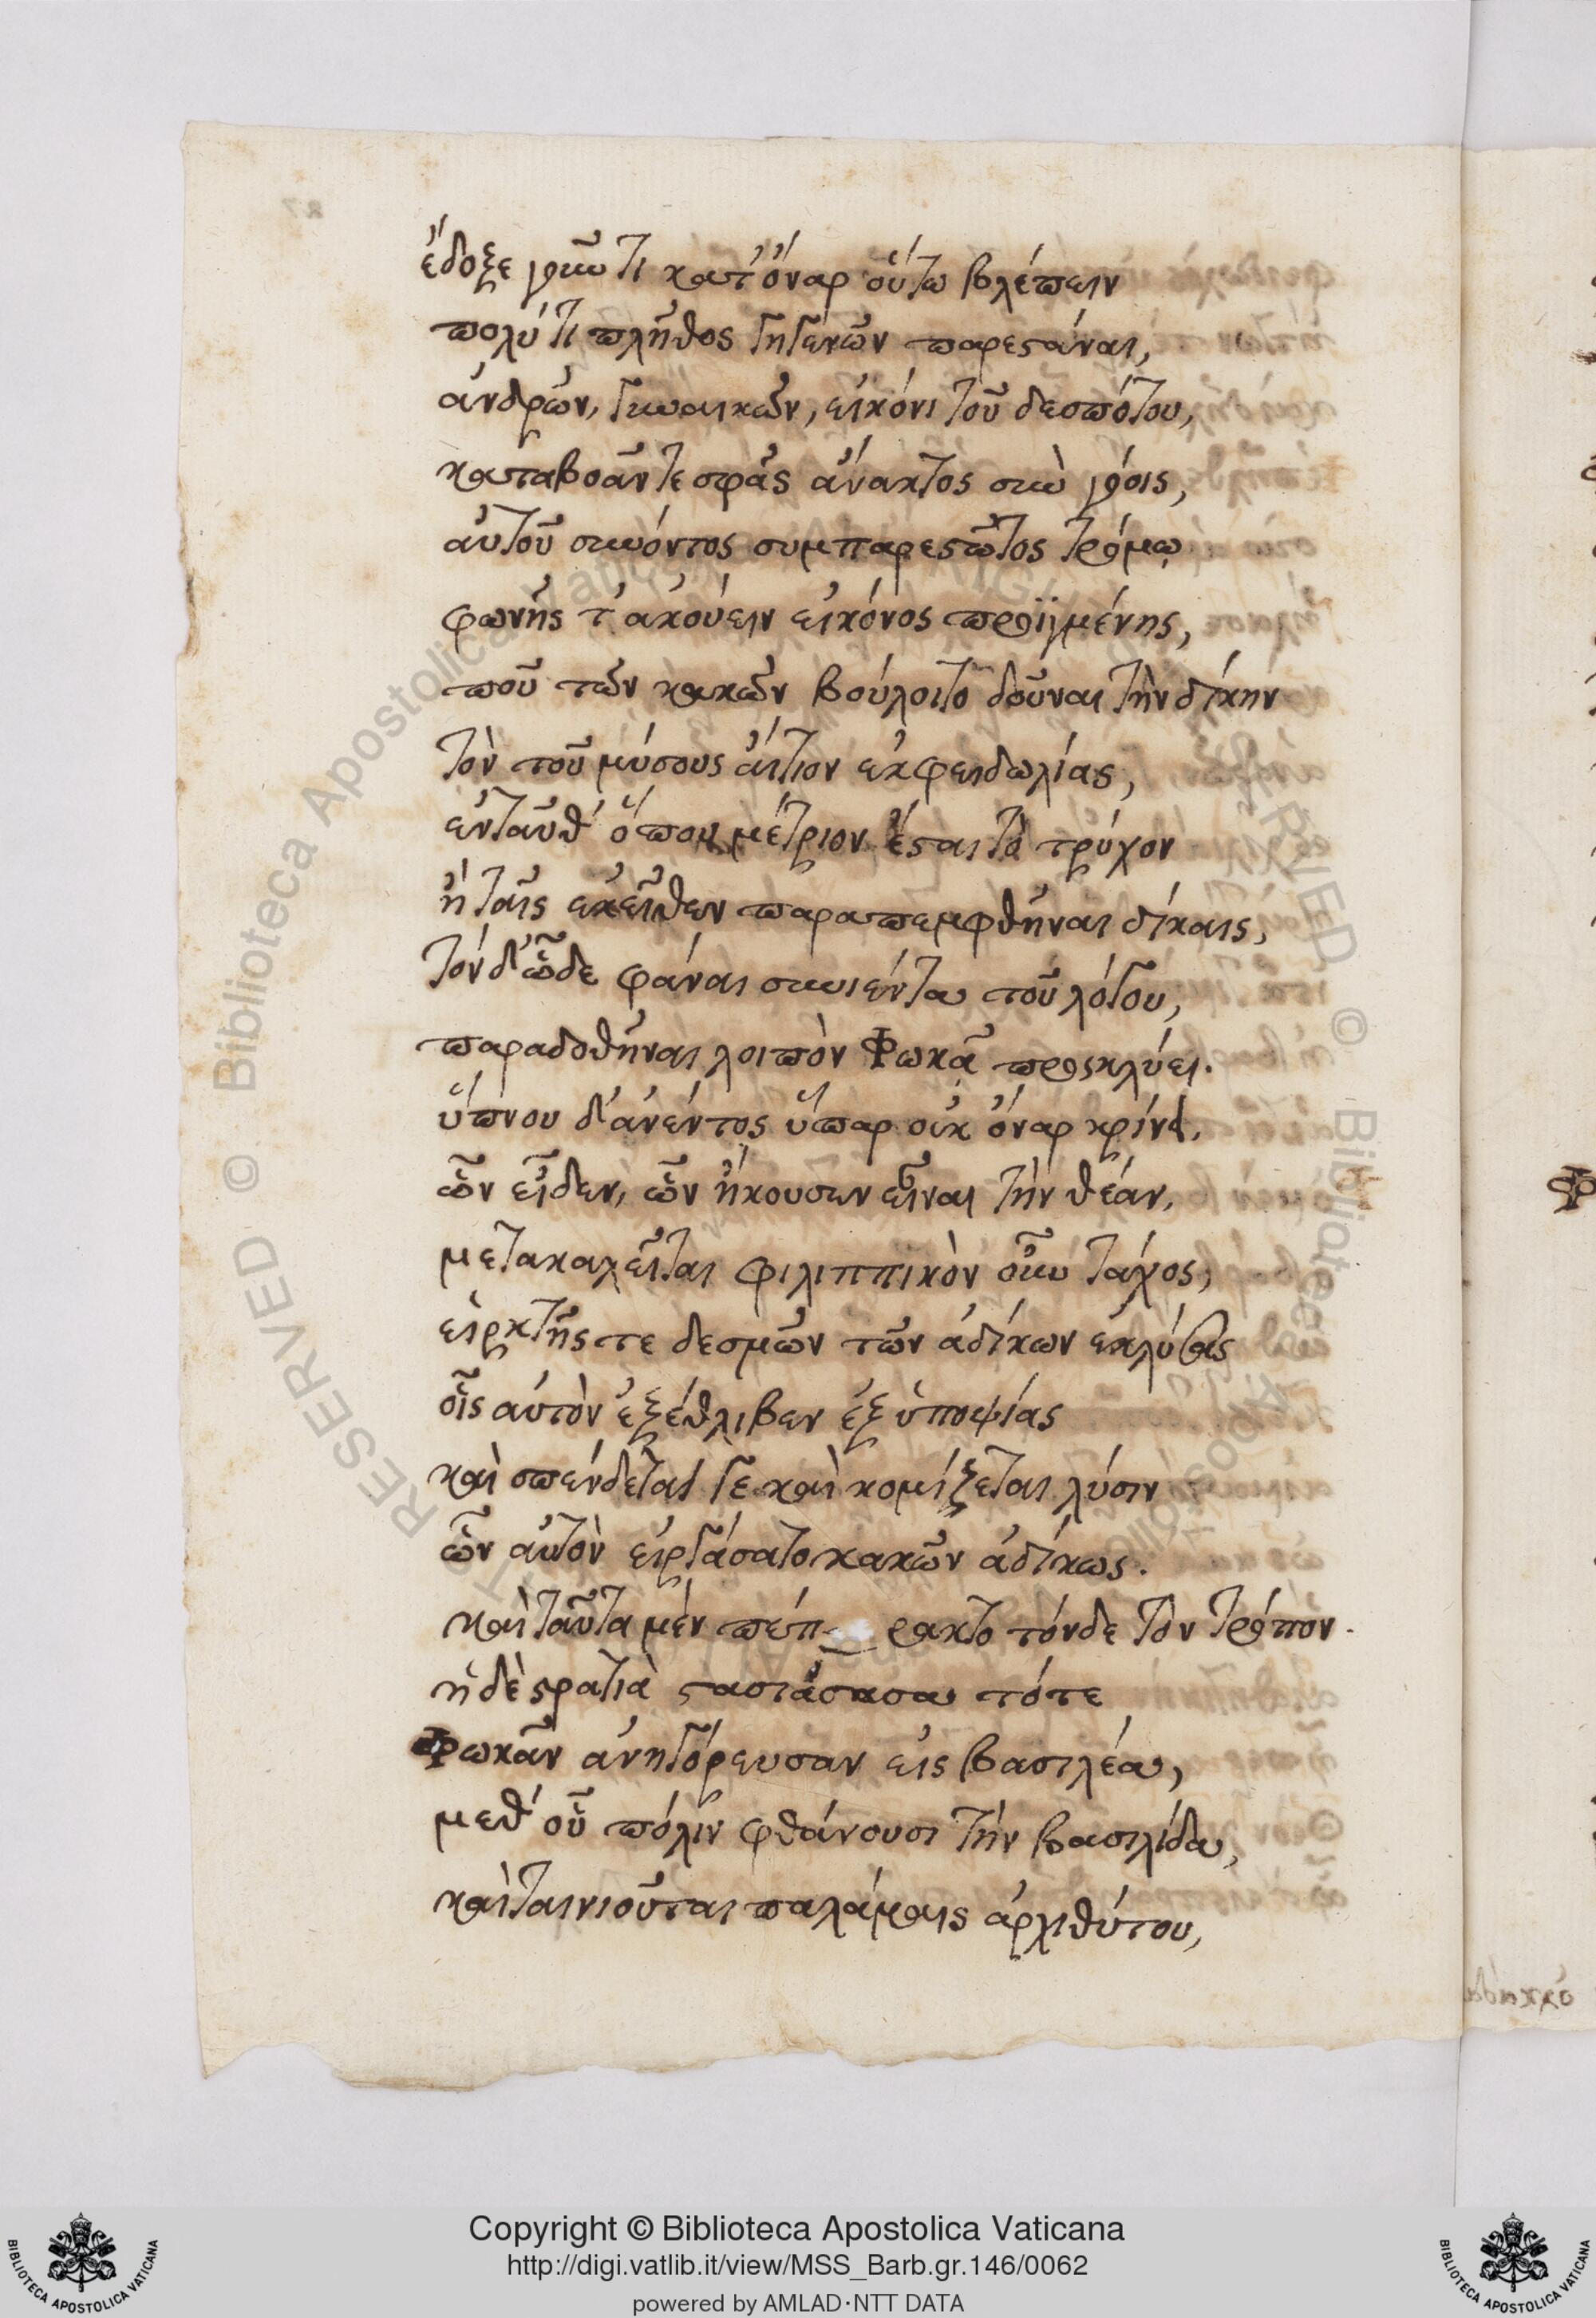 ἔδοξε γοῦν τι κατ' ὄναρ οὕτω βλέπειν
πολύ τι πλῆθος γηγενῶν παρεστάναι,
ἀνδρῶν, γυναικῶν, εἰκόνι τοῦ δεσπότου,
καταβοᾶν τε σφᾶς ἄνακτος σὺν γόοις,
αὐτοῦ συνόντος συμπαρεστῶτος τρόμῳ
φωνῆς τ' ἀκούειν εἰκόνος προϊγμένης,
ποῦ τῶν κακῶν βούλοιτο δοῦναι τὴν δίκην
τὸν τοῦ μύσους αἴτιον ἐκ φειδωλίας,
ἐνταῦθ' ὅπου μέτριον ἔσται τὸ τρύχον
ἢ ταῖς ἐκεῖθεν παραπεμφθῆναι δίκαις,
τὸν δ' ὧδε φάναι συνιέντα τοῦ λόγου,
παραδοθῆναι λοιπὸν Φωκᾷ προσκλύει.
ὕπνου δ' ἀνέντος ὕπαρ οὐκ ὄναρ κρίνει,
ὧν εἶδεν, ὧν ἤκουσεν εἶναι τὴν θέαν,
μετακαλεῖται φιλιππικὸν οὖν τάχος,
εἱρκτῆς τε δεσμῶν τῶν ἀδίκων ἐκλύσας
οἷς αὐτὸν ἐξέθλιβεν ἐξ ὑποψίας
καὶ σπένδεταί γε καὶ κομίζεται λύσιν
ὧν αὐτὸν εἰργάσατο κακῶν ἀδίκως.
καὶ ταῦτα μὲν πέπρακτο τόνδε τὸν τρόπον.
ἡ δὲ στρατιὰ στασιάσασα τότε
Φωκᾶν ἀνηγόρευσαν εἰς βασιλέα,
μεθ' οὗ πόλιν φθάνουσι τὴν βασιλίδα,
καὶ ταινιοῦται παλάμαις ἀρχιθύτου,
Copyright © Biblioteca Apostolica Vaticana
http://digi.vatlib.it/view/MSS_Barb.gr.146/0062
powered by AMLAD·NTT DATA